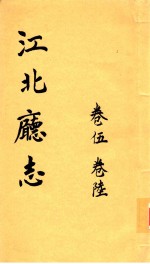 江北廳志
卷伍 卷陸